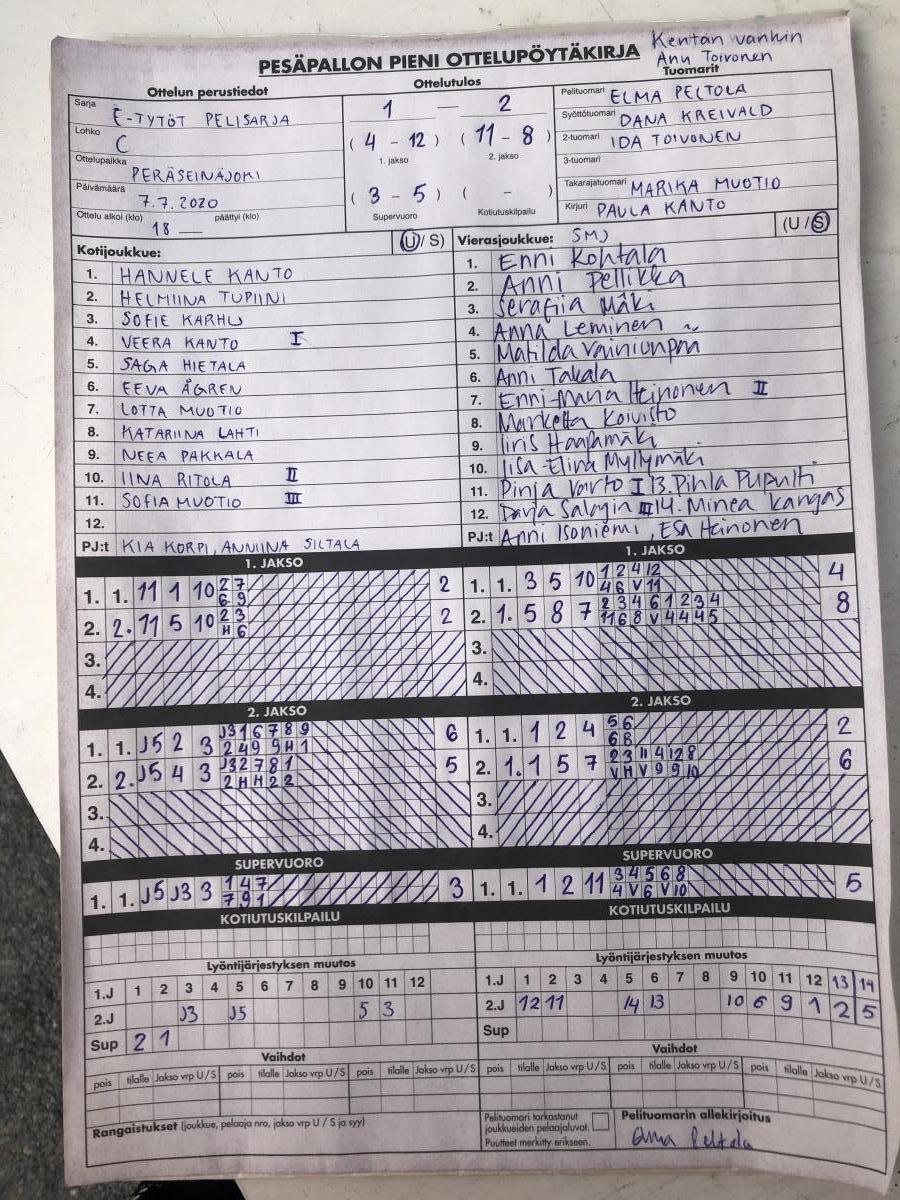 Kentän vanhin
Anu Toivonen
PESÄPALLON PIENI OTTELUPÖYTÄKIRJA
Ottelun perustiedot
Sarja E-TYTÖT PELISARJA
Lohko C
Ottelupaikka PERÄSEINÄJOKI
Päivämäärä 7.7.2020
Ottelu alkoi (klo) 18 — päättyi (klo)
Ottelutulos
1 — 2
( 4 - 12 ) ( 11 - 8 )
1. jakso 2. jakso
( 3 - 5 ) ( - )
Supervuoro Kotiutuskilpailu
Tuomarit
Pelituomari ELMA PELTOLA
Syöttötuomari DANA KREIVALD
2-tuomari IDA TOIVONEN
3-tuomari
Takarajatuomari MARIKA MUOTIO
Kirjuri PAULA KANTO
Kotijoukkue: (U / S)
1. HANNELE KANTO
2. HELMIINA TUPIINI
3. SOFIE KARHU
4. VEERA KANTO I
5. SAGA HIETALA
6. EEVA ÅGREN
7. LOTTA MUOTIO
8. KATARIINA LAHTI
9. NEEA PAKKALA
10. IINA RITOLA II
11. SOFIA MUOTIO III
12.
PJ:t KIA KORPI, ANNIINA SILTALA
Vierasjoukkue: SMJ (U / S)
1. Enni Kohtala
2. Anni Pellikka
3. Serafiia Mäki
4. Anna Leminen
5. Matilda Vainionpää
6. Anni Takala
7. Enni-Maria Heinonen II
8. Marketta Koivisto
9. Iiris Haapamäki
10. Iisa-Elina Myllymäki
11. Pinja Varto I 13. Pihla Pupulti
12. Darja Salagin III 14. Minea Kangas
PJ:t Anni Isoniemi, Esa Heinonen
1. JAKSO
1. 1. 11 1 10 2 7 2
6 9
2. 2. 11 5 10 2 3 2
H 6
3.
4.
1. JAKSO
1. 1. 3 5 10 1 2 4 12 4
4 6 V 11
2. 1. 5 8 7 2 3 4 6 1 2 3 4 8
11 6 8 V 4 4 4 5
3.
4.
2. JAKSO
1. 1. J5 2 3 J3 1 6 7 8 9 6
2 4 9 9 H 1
2. 2. J5 4 3 J3 2 7 8 1 5
2 H H 2 2
3.
4.
2. JAKSO
1. 1. 1 2 4 5 6 2
6 8
2. 1. 1 5 7 2 3 11 4 12 8 6
V H V 9 9 10
3.
4.
SUPERVUORO
1. 1. J5 J3 3 1 4 7 3
7 9 1
SUPERVUORO
1. 1. 1 2 11 3 4 5 6 8 5
4 V 6 V 10
KOTIUTUSKILPAILU
KOTIUTUSKILPAILU
Lyöntijärjestyksen muutos
1.J 1 2 3 4 5 6 7 8 9 10 11 12
2.J J3 J5 5 3
Sup 2 1
Lyöntijärjestyksen muutos
1.J 1 2 3 4 5 6 7 8 9 10 11 12 13 14
2.J 12 11 14 13 10 6 9 1 2 5
Sup
Vaihdot
pois tilalle Jakso vrp U / S pois tilalle Jakso vrp U / S pois tilalle Jakso vrp U / S
Vaihdot
pois tilalle Jakso vrp U / S pois tilalle Jakso vrp U / S pois tilalle Jakso vrp U / S
Rangaistukset (joukkue, pelaaja nro, jakso vrp U / S ja syy)
Pelituomari tarkastanut
joukkueiden pelaajaluvat.
Puutteet merkitty erikseen.
Pelituomarin allekirjoitus
Elma Peltola